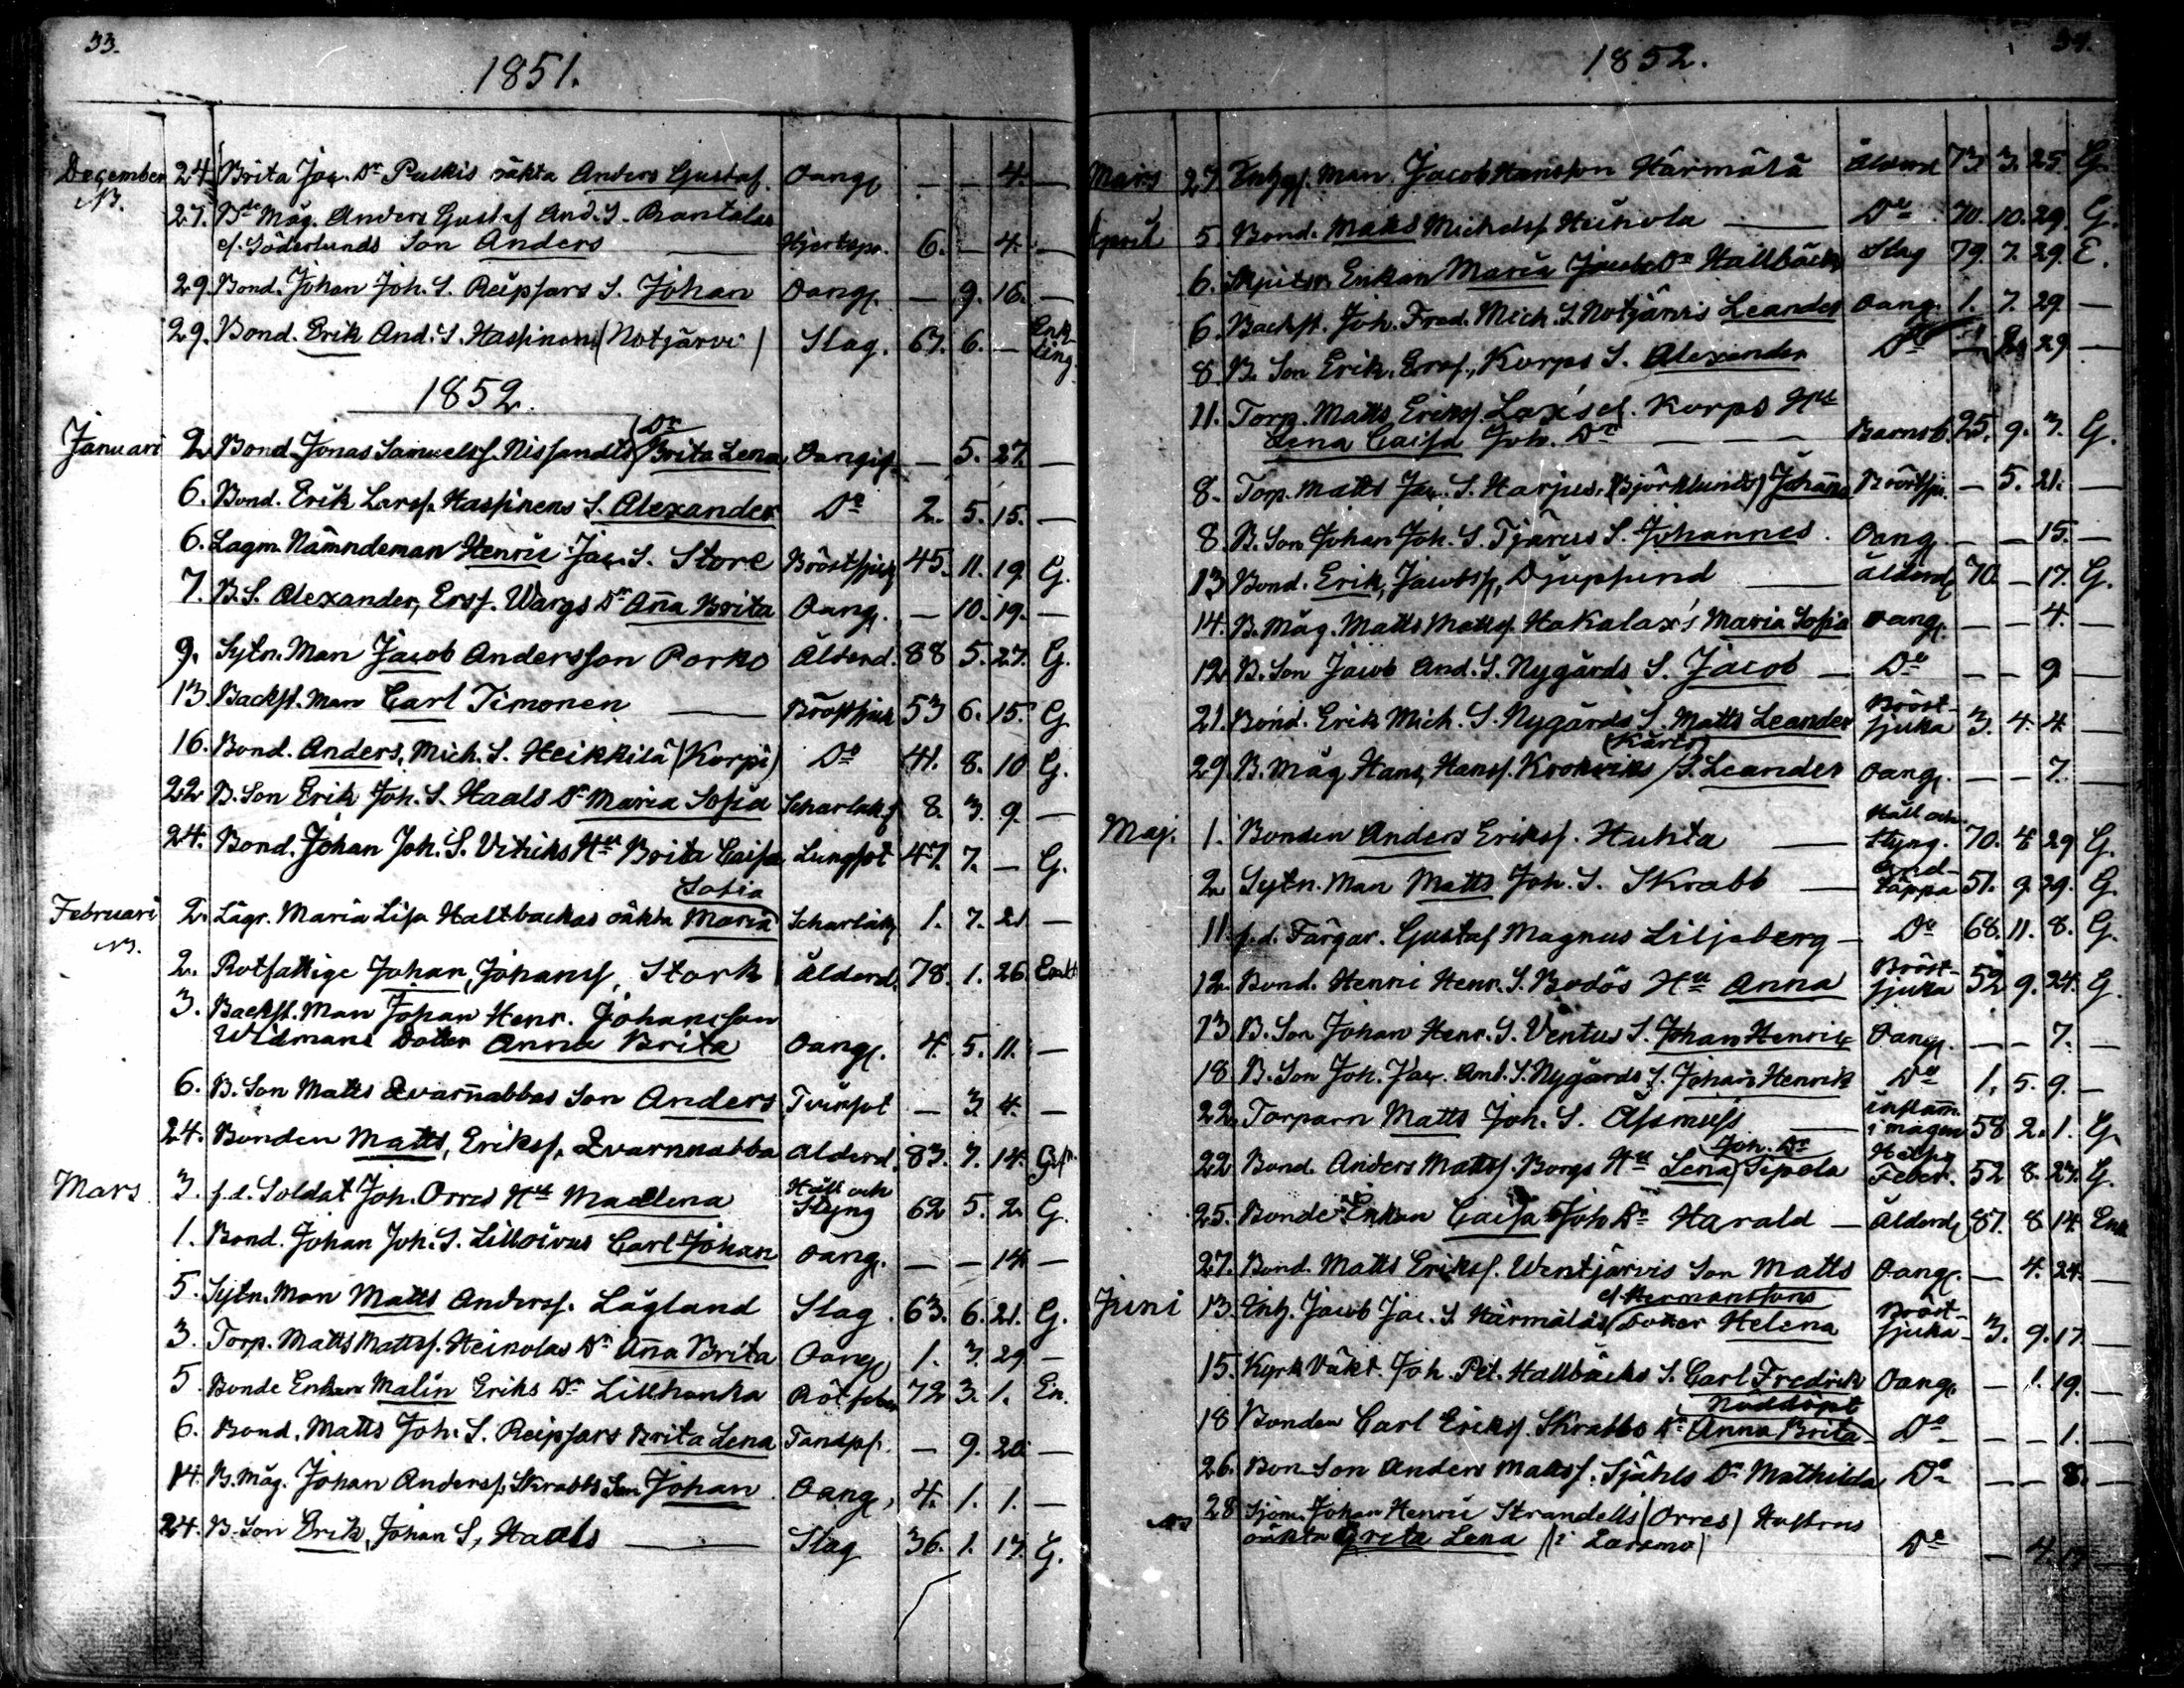 33.
1851.
December 24. Brita Jac. Dr Pulkis oäkta Anders Gustaf. Oang. — — 4. —
27. Bde Måg. Anders Gustaf And. S. Rantalas
e/. Söderlunds Son Anders — Hjertspr. 6. — 4. —
29. Bond. Johan Joh. S. Reipsars S. Johan Oang. — 9. 16. —
29. Bond. Erik And. S. Hassinen (Notjärvi) Slag. 67. 6. — Enkling
1852.
Januari 2. Bond. Jonas Samuelss. Nissandts Dr Brita Lena Oangif. — 5. 27. —
6. Bond. Erik Larss. Hassinens S. Alexander Do 2. 5. 15. —
6. Lagm. Nämndeman Henric Jac. S. Store Bröstsjuk 45. 11. 19. G.
7. B. S. Alexander, Erss. Wargs Dr Anna Brita Oang. — 10. 19. —
9. Sytn. Man Jacob Andersson Porko Ålderd. 88 5. 27. G.
13. Backst. Man Carl Timonen — Bröstsjuk 53 6. 15. G.
16. Bond. Anders, Mich. S. Heikkilä (Korpi) Do 41. 8. 10 G.
22 B. Son Erik Joh. S. Haals Dr Maria Sofia Scharlakf. 8. 3. 9. —
24. Bond. Johan Joh. S. Hu Brita Caisa Lungsot 47. 7. — G.
Sofia
Februari 2. Lägr. Maria Lisa Haltbackas oäkta Maria Scharlakf 1. 7. 21 —
2. Rotfattige Johan, Johanss. Stork Ålderd. 78. 1. 26. Enkl
3. Backst. Man Johan Henr. Johansson
Widmans Dotter Anna Brita Oang. 4. 5. 11. —
6. B. Son Matts Qvarnabbas Son Anders Tvinsot — 3. 4. —
24. Bonden Matts, Erikss. Qvarnnabba Ålderd. 83. 7. 14. Gift
Mars 3. f.d. Soldat Joh. Orres Hu Madlena Håll och Styng 62 5. 2. G.
1. Bond. Johan Joh. S. Carl Johan Oang. — — 14. —
5. Sytn. Man Matts Anderss. Lågland Slag. 63. 6. 21. G.
3. Torp. Matts Mattss. Heikolas Dr Anna Brita Oang. 1. 3. 29 —
5. Bonde Enkan Malin Eriks Dr Lillhanka Rötfeber 72 3. 1. En.
6. Bond. Matts Joh. S. Reipsars Brita Lena Tandpl. — 9. 20. —
14. B. Måg. Johan Anderss. Skrabbs Son Johan Oang. 4. 1. 1. —
24. B. Son Erik, Johan S, Haals — Slag 36. 1. 17. G.
34.
1852.
Mars 27. Inhys. Man. Jacob Hansson Härmälä Ålderd 73. 3. 25. G.
April 5. Bond. Matts Michelss. Heikola — Do 70. 10. 29. G.
6. Enkan Maria Jacobs Dr Hallbäck Slag 79. 7. 29. E.
6. Backst. Joh. Fred. Mich. S. Notjärvis Leander Oang. 1. 7. 29 —
8. B. Son Erik, Erss., Korps S. Alexander Do — 29 —
11. Torp. Matts Erikss. Korps Hu
Lena Caisa Joh. Dr — — — Barnsb. 25. 9. 3. G.
8. Torp. Matts Jac. S. Harjus (Björklunds) Johanna Bröstsju. — 5. 21. —
8. B. Son Johan Joh. S. Tjärus S. Johannes. Oang. — — 15. —
13 Bond. Erik, Jacobss., Djupsund — ålderd. 70. — 17. G.
14. B. Måg. Matts Mattss. Hakalax's Maria Sofia oang. — — 4. —
12. B. Son Jacob And. S. Nygårds S. Jacob — Do — — 9 —
21. Bond. Erik Mich. S. Nygårds S. Matts Leander Bröstsjuka 3. 4. 4 —
29. B. Måg Hans, Hanss. Krokviks S. Leander Oang. — — 7. —
Maj. 1. Bonden Anders Erikss. Huhta — Håll och Styng. 70. 4. 29 G.
2. Sytn. Man Matts Joh. S. Skrabb — And-täppa 51. 9. 29. G.
11. f.d. Färgar. Gustaf Magnus Liljeberg — Do 68. 11. 8. G.
12. Bond. Henric Henr. S. Bodös Hu Anna Bröstsjuka 52 9. 24. G.
13 B. Son Johan Henr. S. Ventus S. Johan Henric Oang. — — 7. —
18 B. Son Joh. Jac. And. S. Nygårds S. Johan Henrik Do 1. 5. 9. —
22. Torparn Matts Joh. S. Assmuss — inflam. i magen 58 2. 1. G.
Joh. Dr
22 Bond. Anders Mattss. Borgs Hu Lena Sipola Feber. 52 8. 23. G.
25. Bonde Enkan Caisa Joh. Dr Harald — Ålderd. 87. 8 14. Enk
27. Bond. Matts Erikss. Wentjärvis Son Matts Oang. — 4. 24. —
e/. Hermanssons
Juni 13. Inh. Jacob Jac. S. Härmäläs Dotter Helena Bröstsjuka 3. 9. 17. —
15. Kyrk Väkt. Joh. Pet. Hallbäcks S. Carl Fredrik Oang. — 1. 19. —
Nöddöpt
18 Bonden Carl Erikss. Skrabbs Dr Anna Brita Do — — 1. —
26. Bon. Son Anders Matss. Sjöhls Dr Mathilda Do — — 8. —
28 Sjöm. Johan Henric Strandells (Orres) Hustrus
oäkta Greta Lena (i Larsmo) Do — 4. 17 —